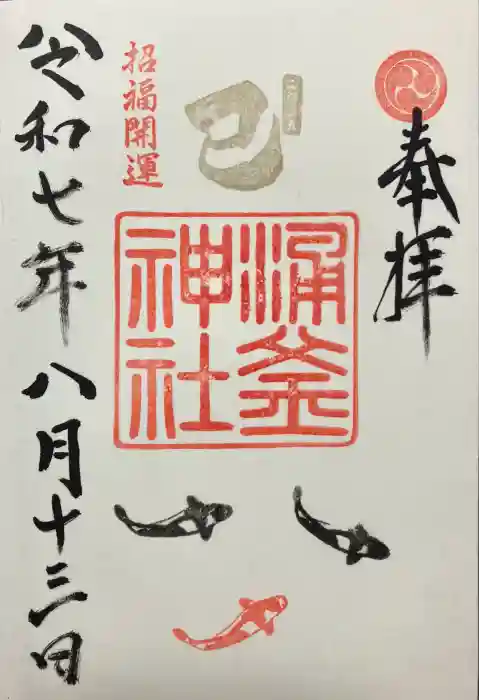 奉拝
招福開運
涌釜
神社
令和七年八月十三日